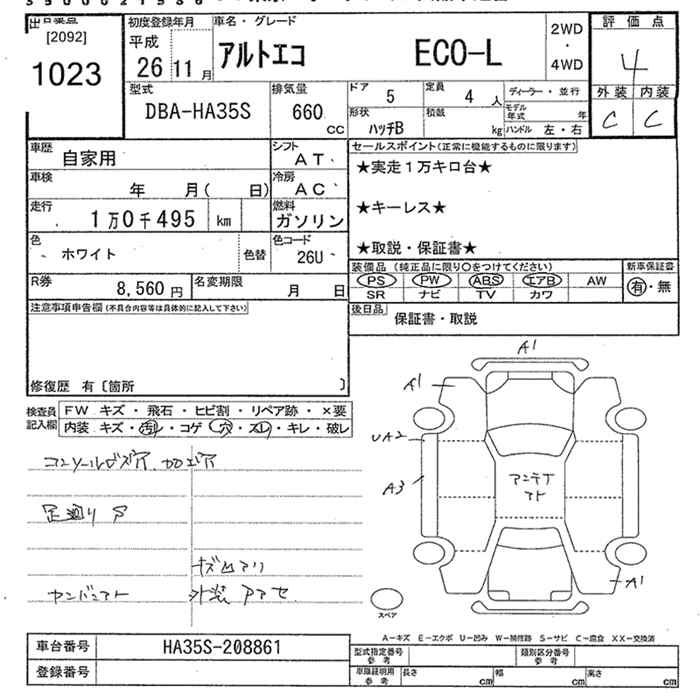 出品票点 初度登録年月 車名・グレード 2WD・4WD 評価点
[2092]
1023
平成 26 11月
アルトエコ ECO-L
4
型式 排気量 ドア 5 定員 4 人 ディーラー・並行 外装 内装
DBA-HA35S 660 cc 形状 ハッチB 積載 kg モデル年式 年 ハンドル 左・右 C C
車歴 自家用 シフト AT セールスポイント(正常に機能するものに限ります)
車検 年 月( 日) 冷房 AC ★実走1万キロ台★
走行 1万0千495 km 燃料 ガソリン ★キーレス★
色 ホワイト 色替 色コード 26U ★取説・保証書★
R券 8,560円 名変期限 月 日 装備品 (純正品に限り○をつけてください) 新車保証書
PS PW ABS エアB AW 有・無
SR ナビ TV カワ
注意事項申告欄(不具合内容等は具体的に記入して下さい) 後日品 保証書・取説
修復歴 有〔箇所 〕
検査員記入欄 FW キズ・飛石・ヒビ割・リペア跡・×要
内装 キズ・汚レ・コゲ・穴・スレ・キレ・破レ
A1
A1
UA2
A3
アンテナ
A1
スペア
キズ
外装
A-キズ E-エクボ U-凹み W-補修跡 S-サビ C-腐食 XX-交換済
車台番号 HA35S-208861 型式指定番号 参考 類別区分番号 参考
登録番号 車庫証明用 参考 長さ cm 幅 cm 高さ cm